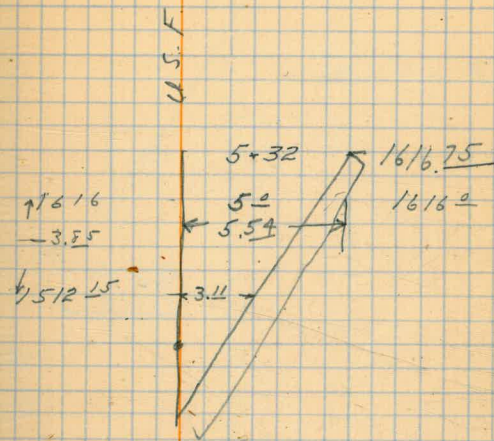 U.S.F
5+32
1616.75
↑1616
5º
1616º
-3.85
5.54
1512 15
3.11